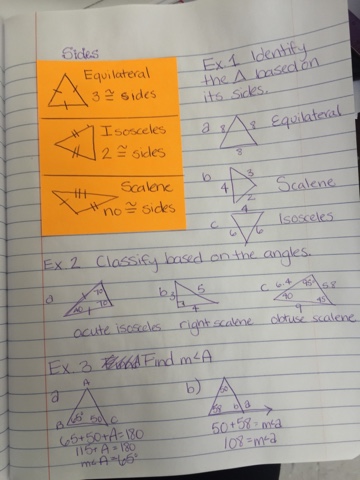 Sides
Equilateral
3 ≅ sides
Isosceles
2 ≅ sides
Scalene
no ≅ sides
Ex. 1 Identify
the △ based on
its sides.
a
8 8
8
Equilateral
b
3
4
2
Scalene
c
4
6 6
Isosceles
Ex. 2 Classify based on the angles.
a
70
40 70
b
3 5
4
c
6.4 95° 5.8
40 45
9
acute isosceles right scalene obtuse scalene
Ex. 3 Find m<A
a
A
B 65° 50 C
65+50+A=180
115+A=180
m<A=65°
b)
50
58 b a
50+58=m<a
108=m<a